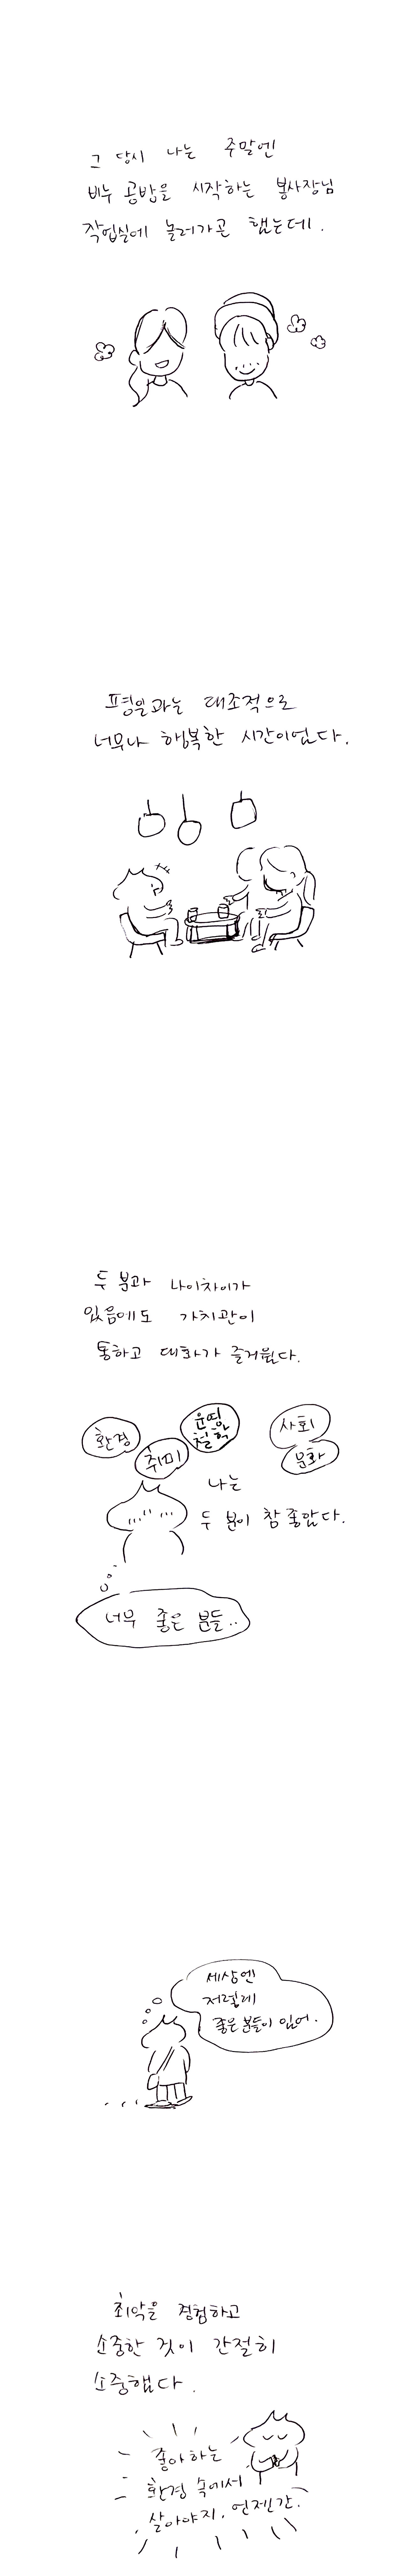 그 당시 나는 주말엔
비누 공방을 시작하는 봉사장님
작업실에 놀러가곤 했는데.
평일과는 대조적으로
너무나 행복한 시간이었다.
두 분과 나이차이가
있음에도 가치관이
통하고 대화가 즐거웠다.
환경
취미
운명학
철학
사회
문화
나는
두 분이 참 좋았다.
너무 좋은 분들..
세상엔
저렇게
좋은 분들이 있어.
최악을 경험하고
소중한 것이 간절히
소중했다.
좋아하는
환경 속에서
살아야지. 언젠간.